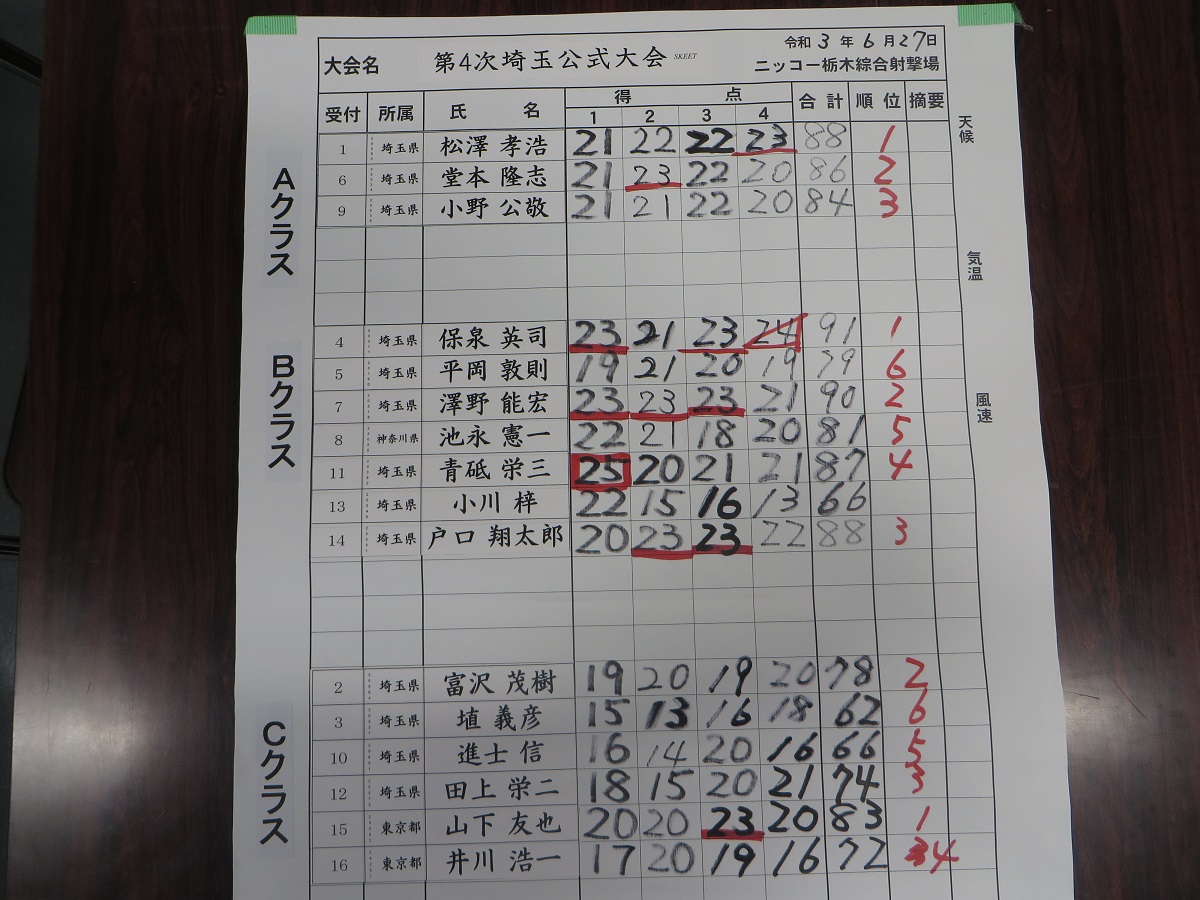 令和 3 年 6 月 27 日
大会名 第4次埼玉公式大会 SKEET ニッコー栃木綜合射撃場
受付 所属 氏 名 得 点 合計 順位 摘要
1 2 3 4
天候
気温
風速
Aクラス
1 埼玉県 松澤 孝浩 21 22 22 23 88 1
6 埼玉県 堂本 隆志 21 23 22 20 86 2
9 埼玉県 小野 公敬 21 21 22 20 84 3
Bクラス
4 埼玉県 保泉 英司 23 21 23 24 91 1
5 埼玉県 平岡 敦則 19 21 20 19 79 6
7 埼玉県 澤野 能宏 23 23 23 21 90 2
8 神奈川県 池永 憲一 22 21 18 20 81 5
11 埼玉県 青砥 栄三 25 20 21 21 87 4
13 埼玉県 小川 梓 22 15 16 13 66
14 埼玉県 戸口 翔太郎 20 23 23 22 88 3
Cクラス
2 埼玉県 富沢 茂樹 19 20 19 20 78 2
3 埼玉県 埴 義彦 15 13 16 18 62 6
10 埼玉県 進士 信 16 14 20 16 66 5
12 埼玉県 田上 栄二 18 15 20 21 74 3
15 東京都 山下 友也 20 20 23 20 83 1
16 東京都 井川 浩一 17 20 19 16 72 4